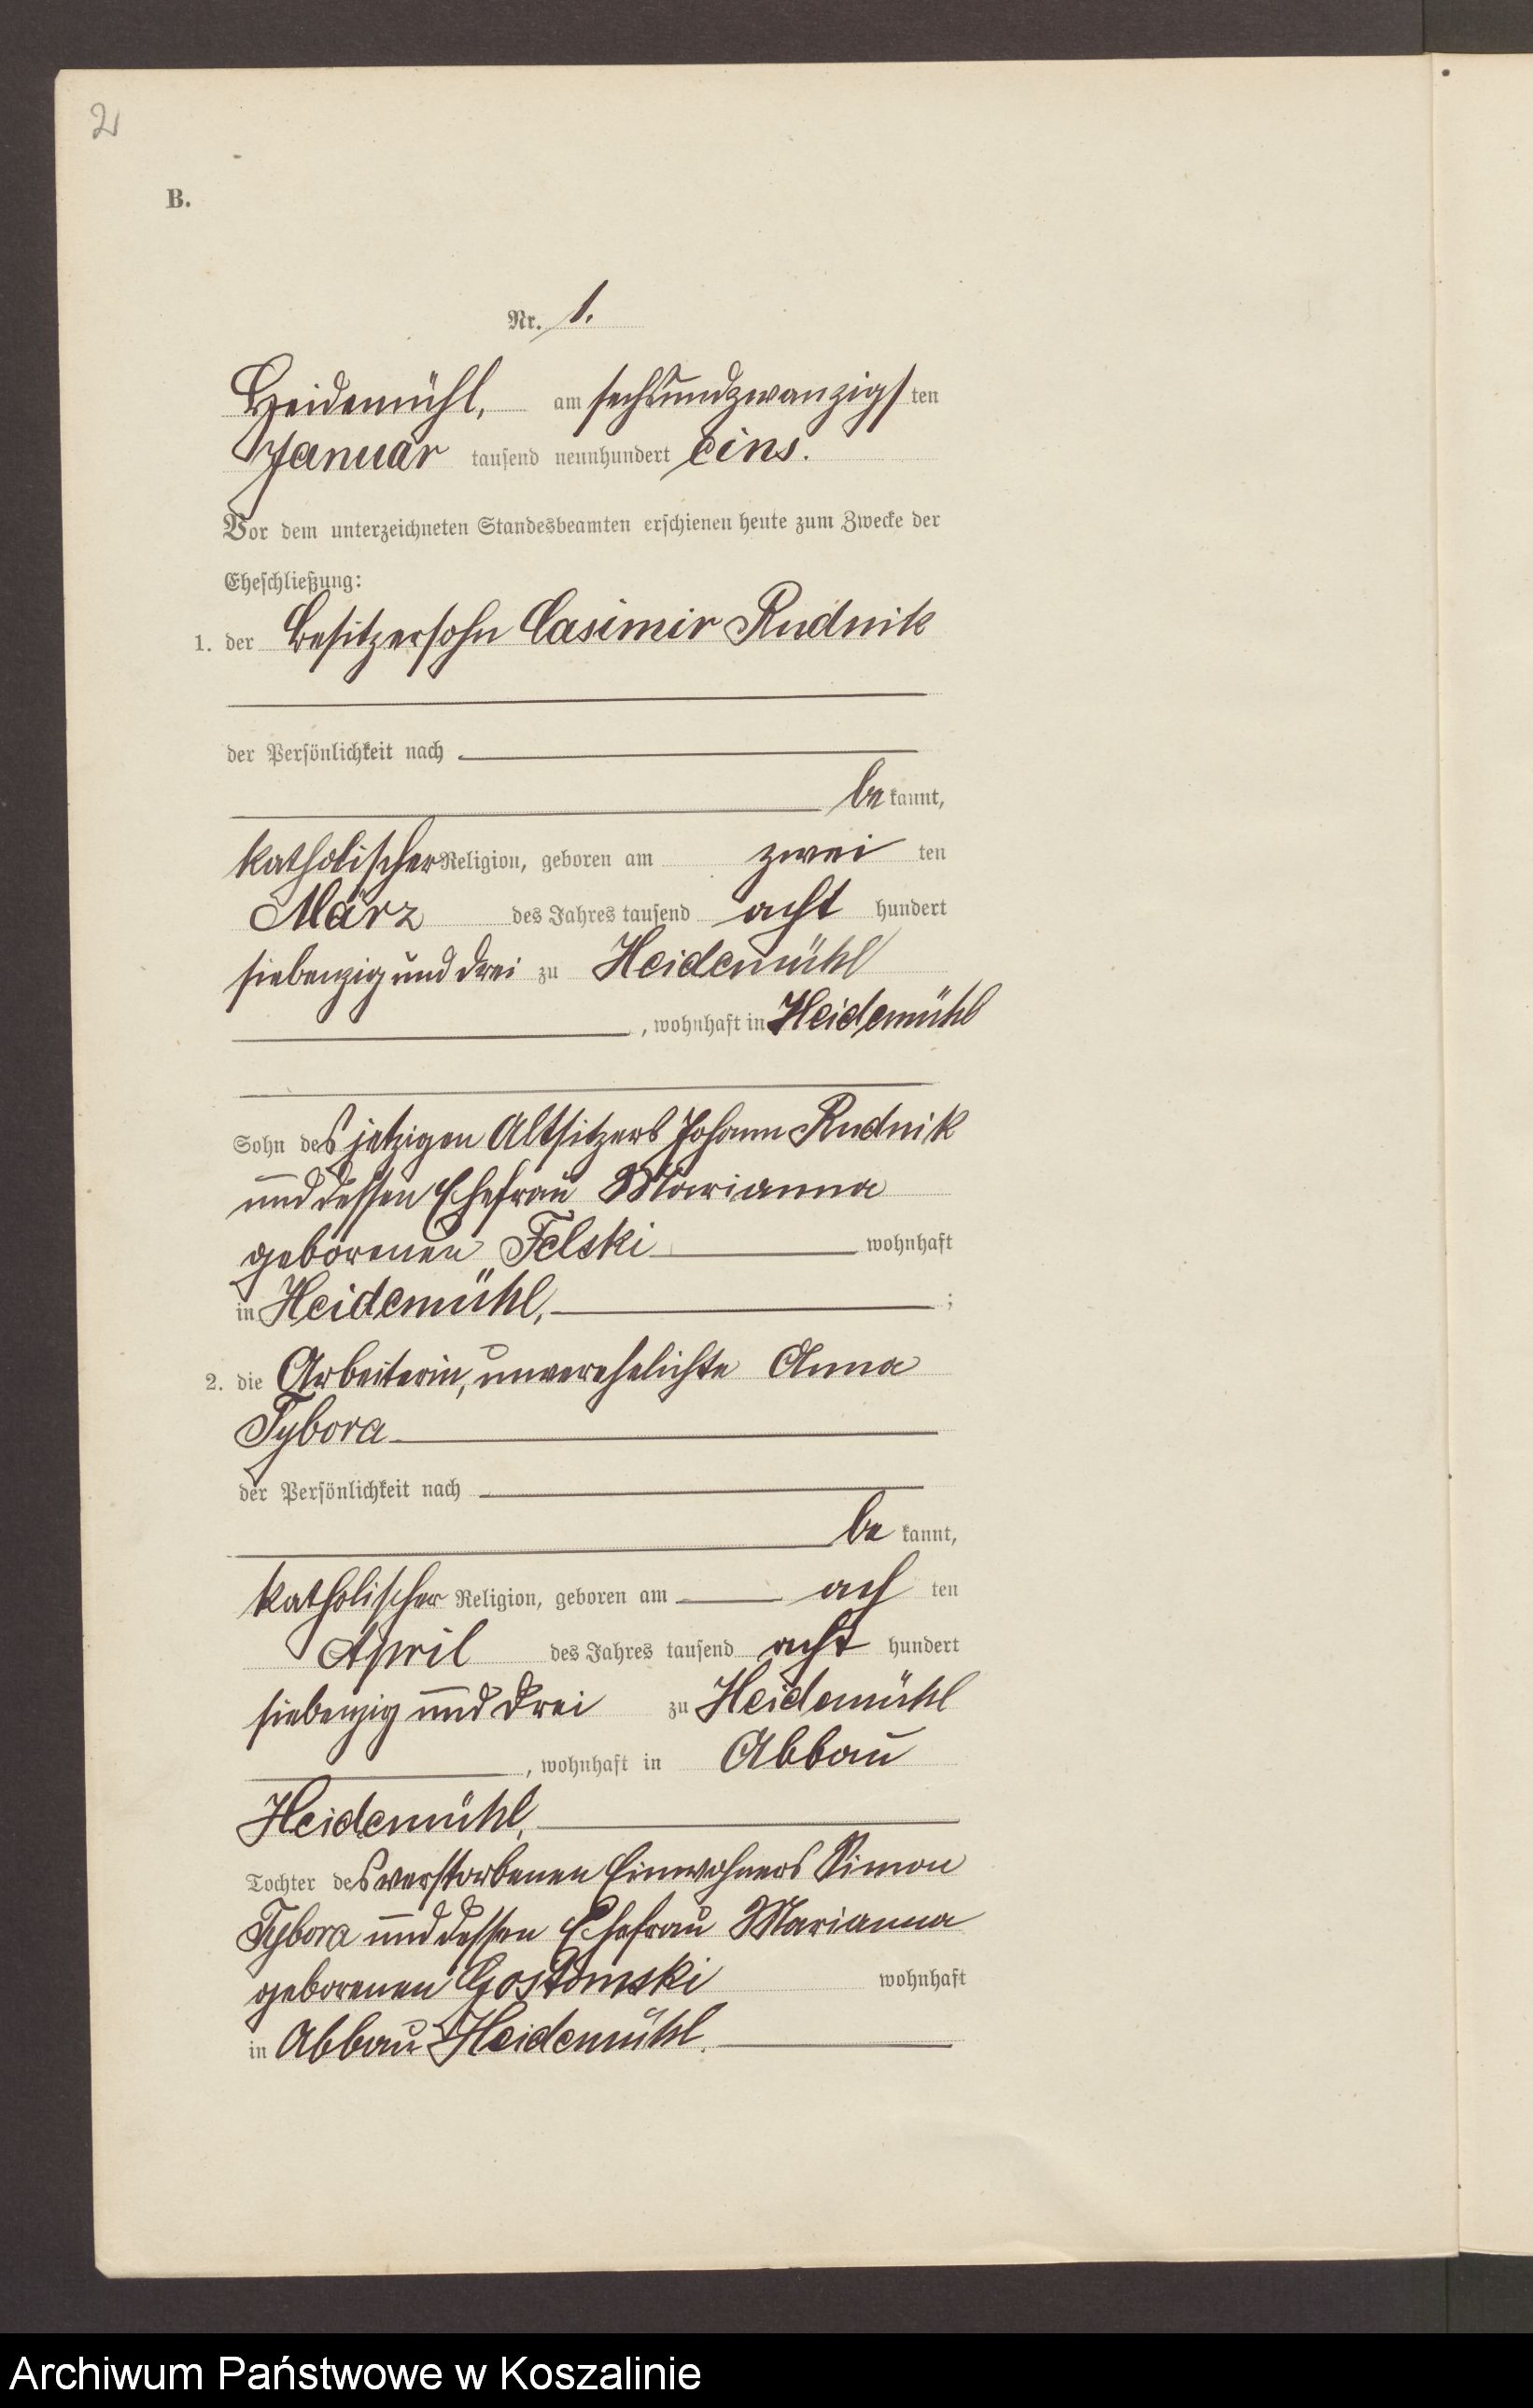 2
B.
Nr. 1.
Heidemühl, am sechsundzwanzigsten
Januar tausend neunhundert eins.
Vor dem unterzeichneten Standesbeamten erschienen heute zum Zwecke der
Eheschließung:
1. der Besitzersohn Casimir Rudnik
der Persönlichkeit nach
be kannt,
katholischer Religion, geboren am zwei ten
März des Jahres tausend acht hundert
siebenzig und drei zu Heidemühl
, wohnhaft in Heidemühl
Sohn des jetzigen Altsitzers Johann Rudnik
und dessen Ehefrau Marianna
geborenen Felski wohnhaft
in Heidemühl, ;
2. die Arbeiterin, unverehelichte Anna
Tybora
der Persönlichkeit nach
be kannt,
katholischer Religion, geboren am ach ten
April des Jahres tausend acht hundert
siebenzig und drei zu Heidemühl
, wohnhaft in Abbau
Heidemühl,
Tochter des verstorbenen Einwohners Simon
Tybora und dessen Ehefrau Marianna
geborenen Gostomski wohnhaft
in Abbau Heidemühl.
Archiwum Państwowe w Koszalinie